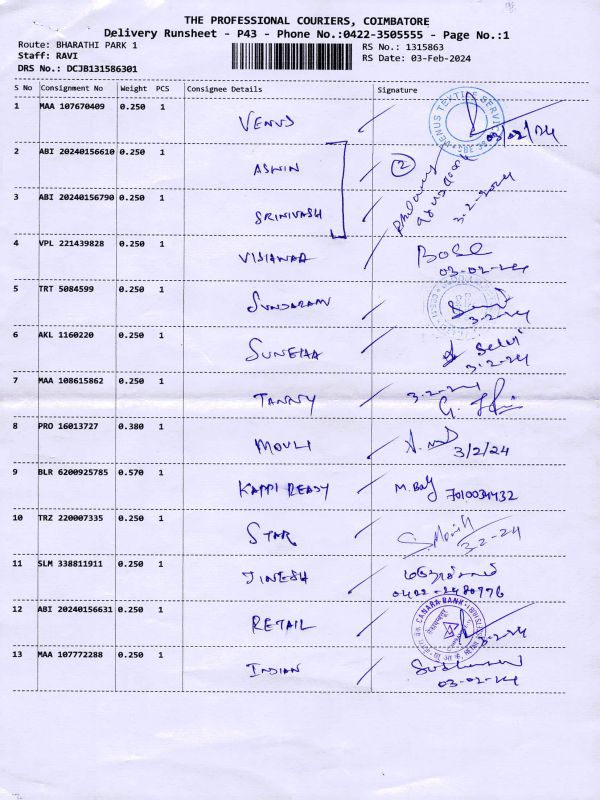 THE PROFESSIONAL COURIERS, COIMBATORE
Delivery Runsheet - P43 - Phone No.:0422-3505555 - Page No.:1
Route: BHARATHI PARK 1
RS No.: 1315863
Staff: RAVI
RS Date: 03-Feb-2024
DRS No.: DCJB131586301
S No Consignment No Weight PCS Consignee Details Signature
1 MAA 107670409 0.250 1 VENUS VENUS TEXTILE 03/02/24
2 ABI 20240156610 0.250 1 ASWIN 2
3 ABI 20240156790 0.250 1 SRINIVASH 3-2-2024
4 VPL 221439828 0.250 1 Bose
03-02-24
5 TRT 5084599 0.250 1 SUNDARAM 3-2-24
6 AKL 1160220 0.250 1 Selvi
3-2-24
7 MAA 108615862 0.250 1 TANNY 3-2-24
8 PRO 16013727 0.380 1 MOULI 3/2/24
9 BLR 6200925785 0.570 1 KAPPI READY 7010034432
10 TRZ 220007335 0.250 1 STAR 3-2-24
11 SLM 338811911 0.250 1 JINESH
0422-2480776
12 ABI 20240156631 0.250 1 RETAIL CANARA BANK 3-2-24
13 MAA 107772288 0.250 1 INDIAN
03-02-24